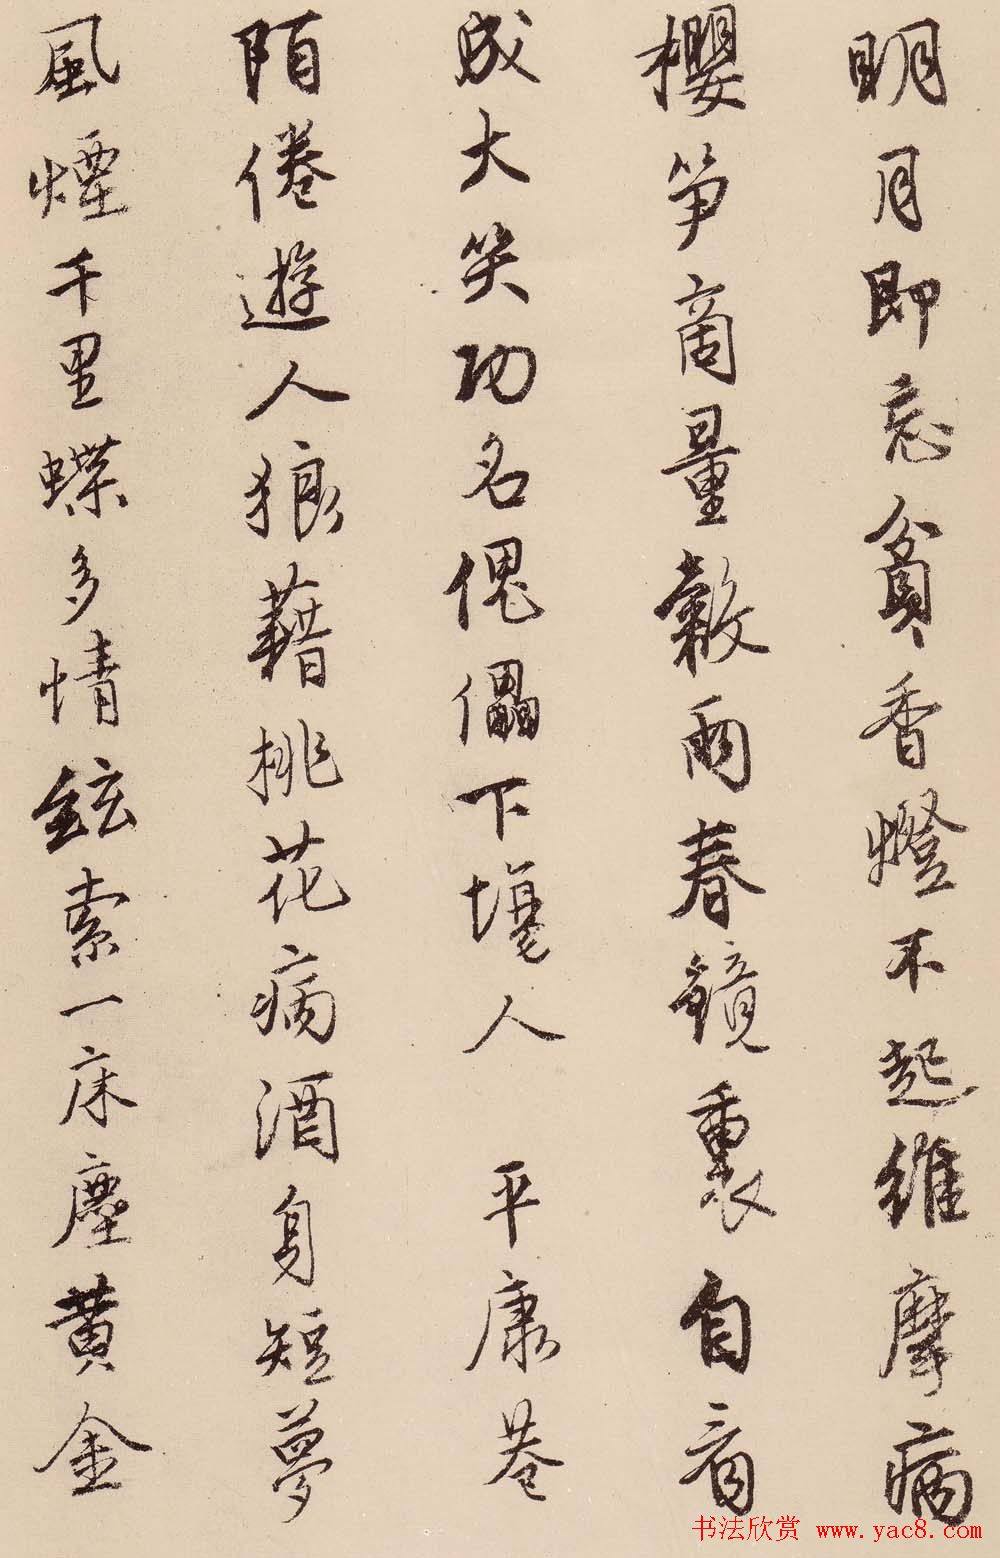 明月即忘貧香燈不起維摩病
櫻笋商量穀雨春鏡裏自看
成大笑功名傀儡下場人 平康巷
陌倦遊人狼藉桃花病酒身短夢
風煙千里蝶多情絃索一床塵黄金
书法欣赏 www.yac8.com